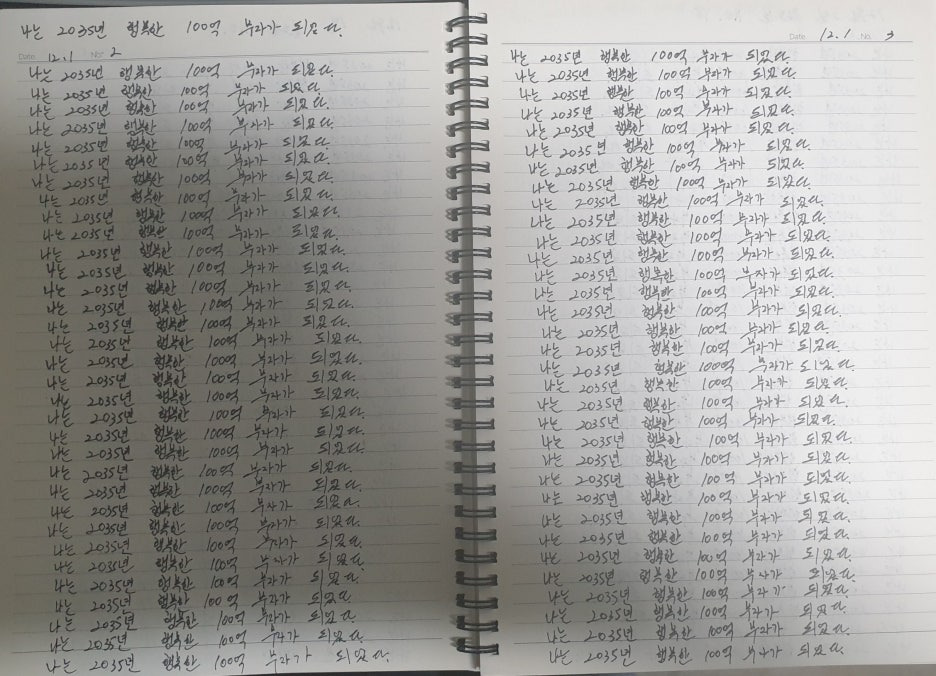 나는 2035년 행복한 100억 부자가 되었다.
Date 12.1 No 2
나는 2035년 행복한 100억 부자가 되었다.
나는 2035년 행복한 100억 부자가 되었다.
나는 2035년 행복한 100억 부자가 되었다.
나는 2035년 행복한 100억 부자가 되었다.
나는 2035년 행복한 100억 부자가 되었다.
나는 2035년 행복한 100억 부자가 되었다.
나는 2035년 행복한 100억 부자가 되었다.
나는 2035년 행복한 100억 부자가 되었다.
나는 2035년 행복한 100억 부자가 되었다.
나는 2035년 행복한 100억 부자가 되었다.
나는 2035년 행복한 100억 부자가 되었다.
나는 2035년 행복한 100억 부자가 되었다.
나는 2035년 행복한 100억 부자가 되었다.
나는 2035년 행복한 100억 부자가 되었다.
나는 2035년 행복한 100억 부자가 되었다.
나는 2035년 행복한 100억 부자가 되었다.
나는 2035년 행복한 100억 부자가 되었다.
나는 2035년 행복한 100억 부자가 되었다.
나는 2035년 행복한 100억 부자가 되었다.
나는 2035년 행복한 100억 부자가 되었다.
나는 2035년 행복한 100억 부자가 되었다.
나는 2035년 행복한 100억 부자가 되었다.
나는 2035년 행복한 100억 부자가 되었다.
나는 2035년 행복한 100억 부자가 되었다.
나는 2035년 행복한 100억 부자가 되었다.
나는 2035년 행복한 100억 부자가 되었다.
나는 2035년 행복한 100억 부자가 되었다.
나는 2035년 행복한 100억 부자가 되었다.
나는 2035년 행복한 100억 부자가 되었다.
나는 2035년 행복한 100억 부자가 되었다.
나는 2035년 행복한 100억 부자가 되었다.
나는 2035년 행복한 100억 부자가 되었다.
나는 2035년 행복한 100억 부자가 되었다.
Date 12.1 No. 3
나는 2035년 행복한 100억 부자가 되었다.
나는 2035년 행복한 100억 부자가 되었다.
나는 2035년 행복한 100억 부자가 되었다.
나는 2035년 행복한 100억 부자가 되었다.
나는 2035년 행복한 100억 부자가 되었다.
나는 2035년 행복한 100억 부자가 되었다.
나는 2035년 행복한 100억 부자가 되었다.
나는 2035년 행복한 100억 부자가 되었다.
나는 2035년 행복한 100억 부자가 되었다.
나는 2035년 행복한 100억 부자가 되었다.
나는 2035년 행복한 100억 부자가 되었다.
나는 2035년 행복한 100억 부자가 되었다.
나는 2035년 행복한 100억 부자가 되었다.
나는 2035년 행복한 100억 부자가 되었다.
나는 2035년 행복한 100억 부자가 되었다.
나는 2035년 행복한 100억 부자가 되었다.
나는 2035년 행복한 100억 부자가 되었다.
나는 2035년 행복한 1000억 부자가 되었다.
나는 2035년 행복한 100억 부자가 되었다.
나는 2035년 행복한 100억 부자가 되었다.
나는 2035년 행복한 100억 부자가 되었다.
나는 2035년 행복한 100억 부자가 되었다.
나는 2035년 행복한 100억 부자가 되었다.
나는 2035년 행복한 100억 부자가 되었다.
나는 2035년 행복한 100억 부자가 되었다.
나는 2035년 행복한 100억 부자가 되었다.
나는 2035년 행복한 100억 부자가 되었다.
나는 2035년 행복한 100억 부자가 되었다.
나는 2035년 행복한 100억 부자가 되었다.
나는 2035년 행복한 100억 부자가 되었다.
나는 2035년 행복한 100억 부자가 되었다.
나는 2035년 행복한 100억 부자가 되었다.
나는 2035년 행복한 100억 부자가 되었다.